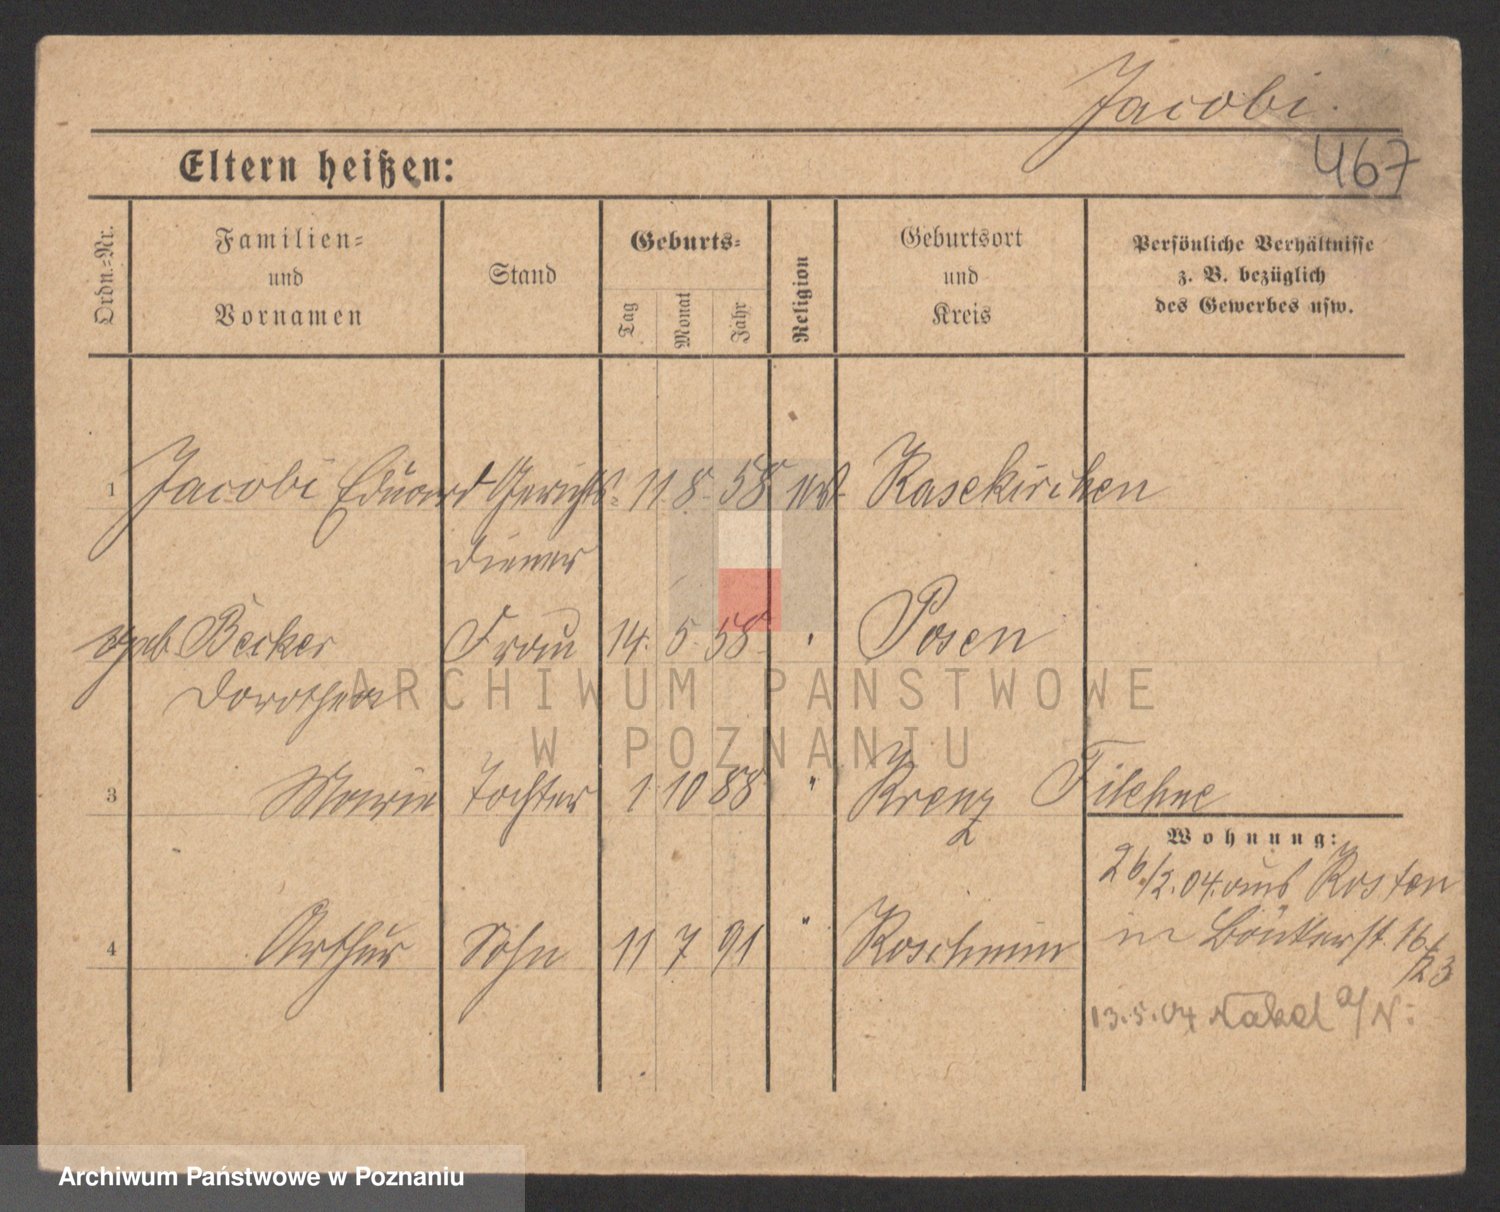 Jacobi.
467
Eltern heißen:
Ordn.=Nr.
Familien=
und
Vornamen
Stand
Geburts=
Tag
Monat
Jahr
Religion
Geburtsort
und
Kreis
Persönliche Verhältnisse
z. B. bezüglich
des Gewerbes usw.
1 Jacobi Eduard Gerichts= 11 8. 58 Rasekirchen
diener
geb. Becker Frau 14. 5. 58 " Posen
Dorothea
3 Marie Tochter 1 10 88 " Kreuz Filehne
Wohnung:
26./2.04. aus Kosten
4 Arthur Sohn 11 7 91 " Koschmin
in Bäckerst. 16/
/23
13.5.04 Nakel a/N.
ARCHIWUM PAŃSTWOWE
W POZNANIU
Archiwum Państwowe w Poznaniu